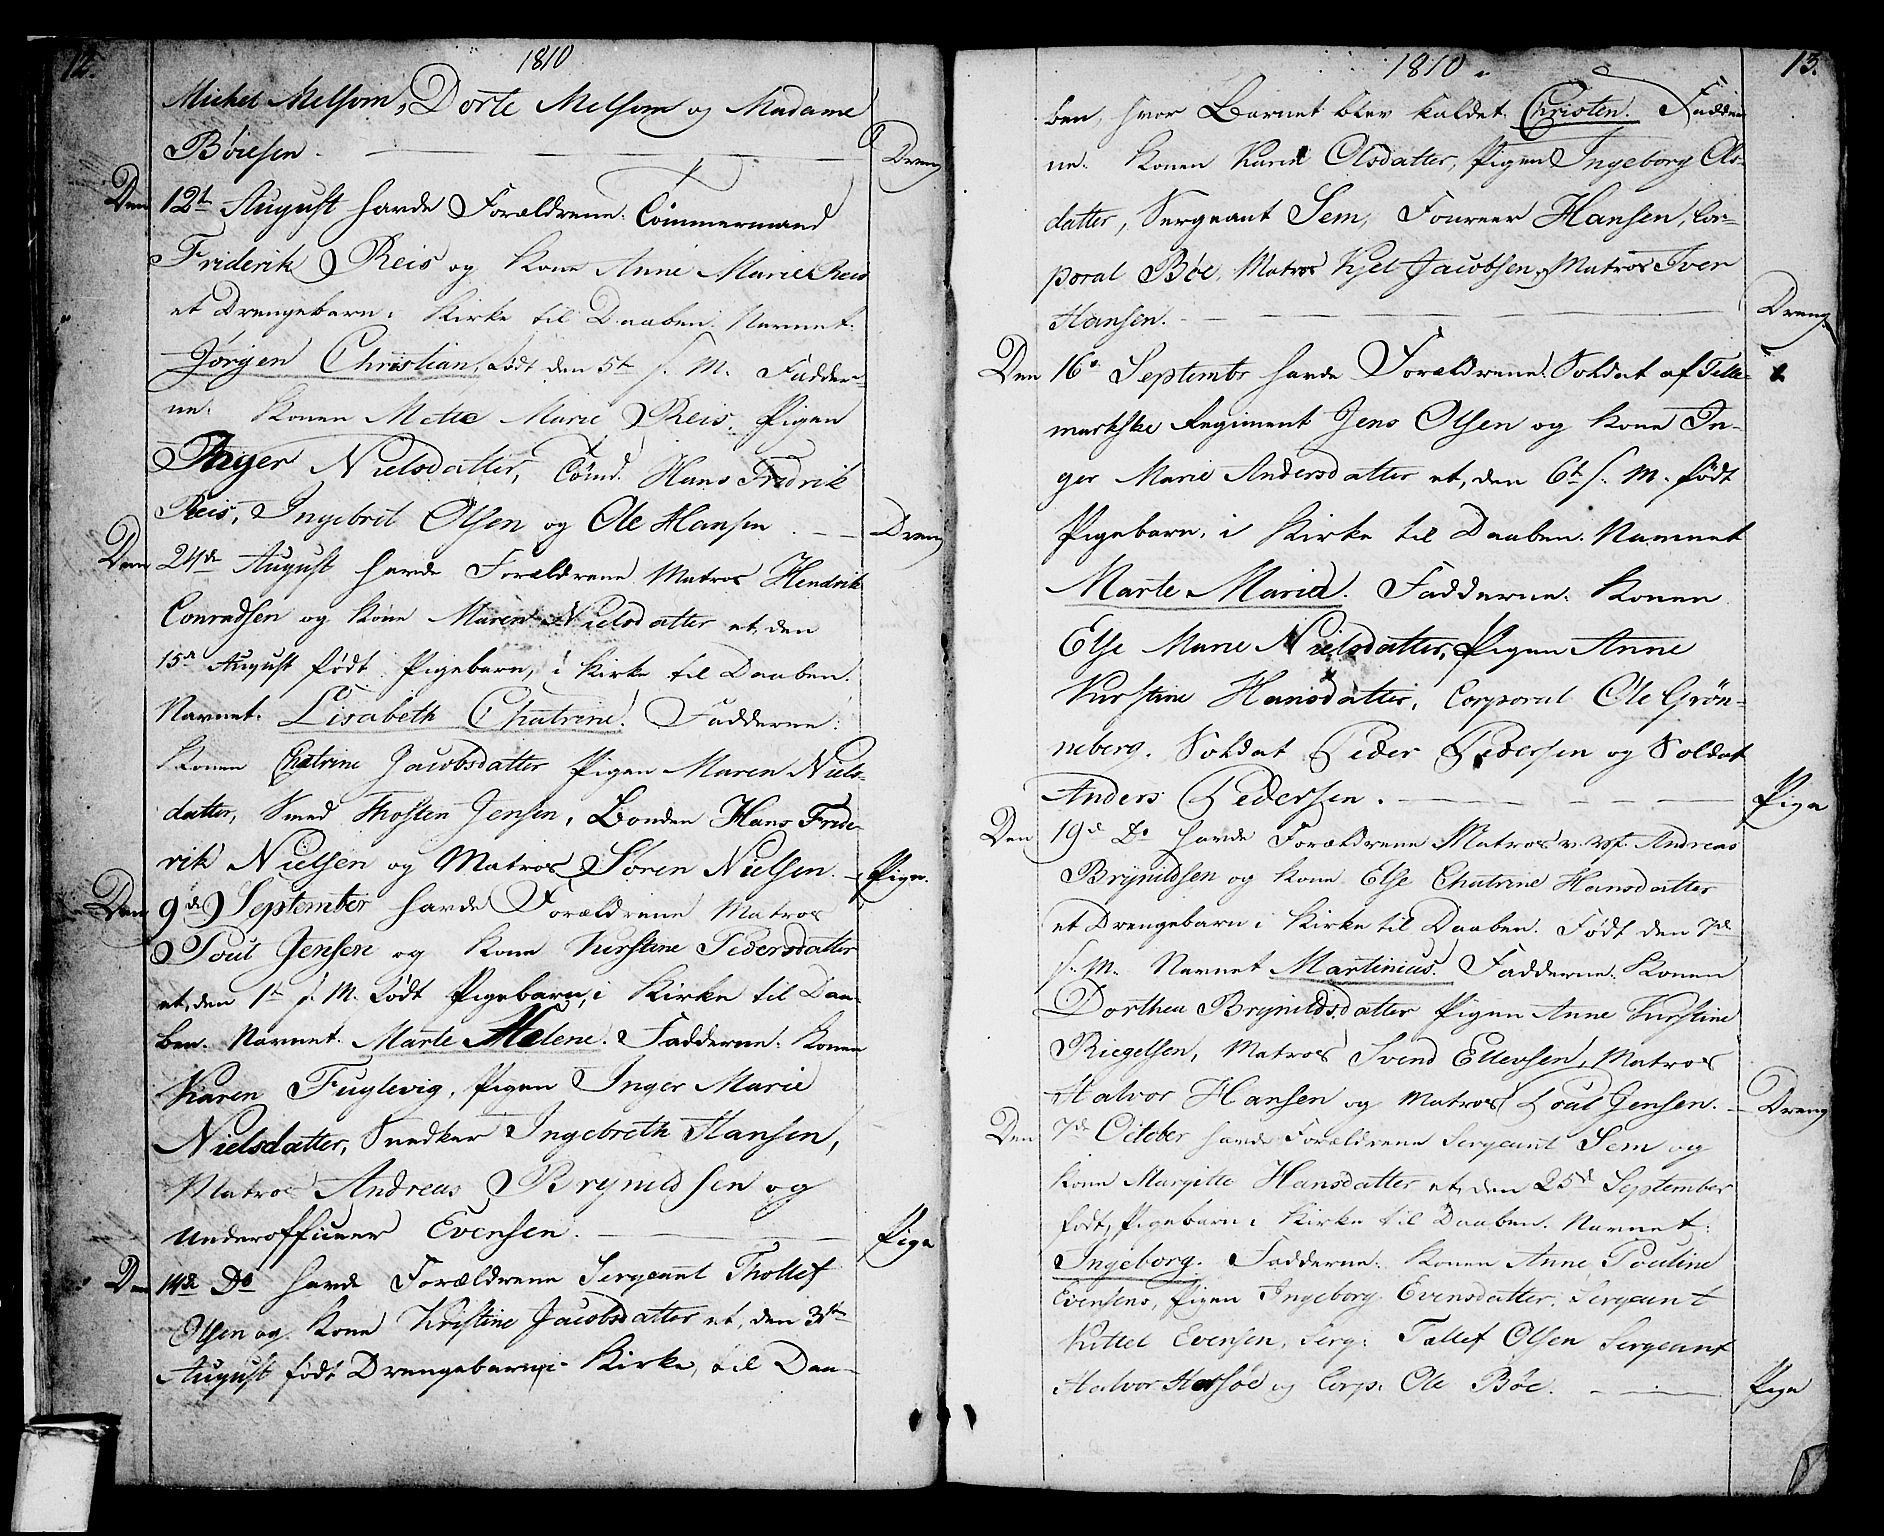 12.
1810
Michel Melsom, Dorte Melsom og Madame
Böiesen.
Dreng
Den 12t August havde Forældrene: Tömmermand
Friderik Reis og Kone Anne Marie Reis
et Drengebarn i Kirke til Daaben. Navnet:
Jörgen Christian, Födt den 5t s. M. Fadder-
ne: Konen Mette Marie Reis, Pigen
Inger Nielsdatter, Tömd. Hans Fredrik
Reis, Ingebret Olsen og Ole Hansen
Dreng
Den 24de August havde Forældrene Matros Hendrik
Conradsen og Kone Maren Nielsdatter et, den
15de August födt Pigebarn, i Kirke til Daaben.
Navnet: Lisabeth Chatrine. Fadderne:
Konen Chatrine Jacobsdatter Pigen Maren Niels-
datter, Smed Thosten Jensen, Bonden Hans Fride-
rik Nielsen og Matros Sören Nielsen.
Pige.
Den 9de September havde Forældrene Matros
Poul Jensen og Kone Kirstine Pedersdatter
et, den 1te s. M. födt Pigebarn, i Kirke til Daa-
ben. Navnet. Marte Helene. Fadderne: Konen
Karen Fuglevig, Pigen Inger Marie
Nielsdatter, Snedker Ingebreth Hansen,
Matros Andreas Brynildsen og
Underofficeer Evensen.
Pige
Den 14de Do havde Forældrene Sergeant Thollef
Olsen og Kone Kristine Jacobsdatter et, den 31te
August födt Drengebarn, i Kirke, til Daa-
1810
13.
ben, hvor Barnet blev kaldet Christen. Fadder-
ne. Konen Karen Olsdatter, Pigen Ingeborg Ols-
datter, Sergeant Sem, Foureer Hansen, Cor-
poral Böe, Matros Kjel Jacobsen, Matros Iver
Hansen.
Dreng
Den 16de Septembr havde Forældrene: Soldat af Telle-
markske Regiment Jens Olsen og Kone In-
ger Marie Andersdatter et, den 6t s. M. födt
Pigebarn, i Kirke til Daaben. Navnet
Marte Maria. Fadderne: Konen
Else Marie Nielsdatter, Pigen Anne
Kirstine Hansdatter, Corporal Ole Grön-
neberg. Soldat Peder Pedersen og Soldat
Anders Pedersen.
Pige
Den 19de Do havde Forældrene Matros Andreas
Brynildsen og Kone Else Chatrine Hansdatter
et Drengebarn i Kirke til Daaben. Födt den 7de
s. M. Navnet Martinius. Fadderne: Konen
Dorthea Brynildsdatter Pigen Anne Kirstine
Riegelsen, Matros Svend Ellevsen, Matros
Halvor Hansen og Matros Poul Jensen.
Dreng
Den 7de October havde Forældrene Sergeant Sem og
Kone Margitte Hansdatter et, den 25de September
födt, Pigebarn i Kirke til Daaben. Navnet:
Ingeborg. Fadderne: Konen Anne Pouline
Evensens, Pigen Ingeborg Evensdatter, Sergeant
Kittel Evensen, Serg: Tollef Olsen Sergeant
Halvor og Corp: Ole Böe.
Pige